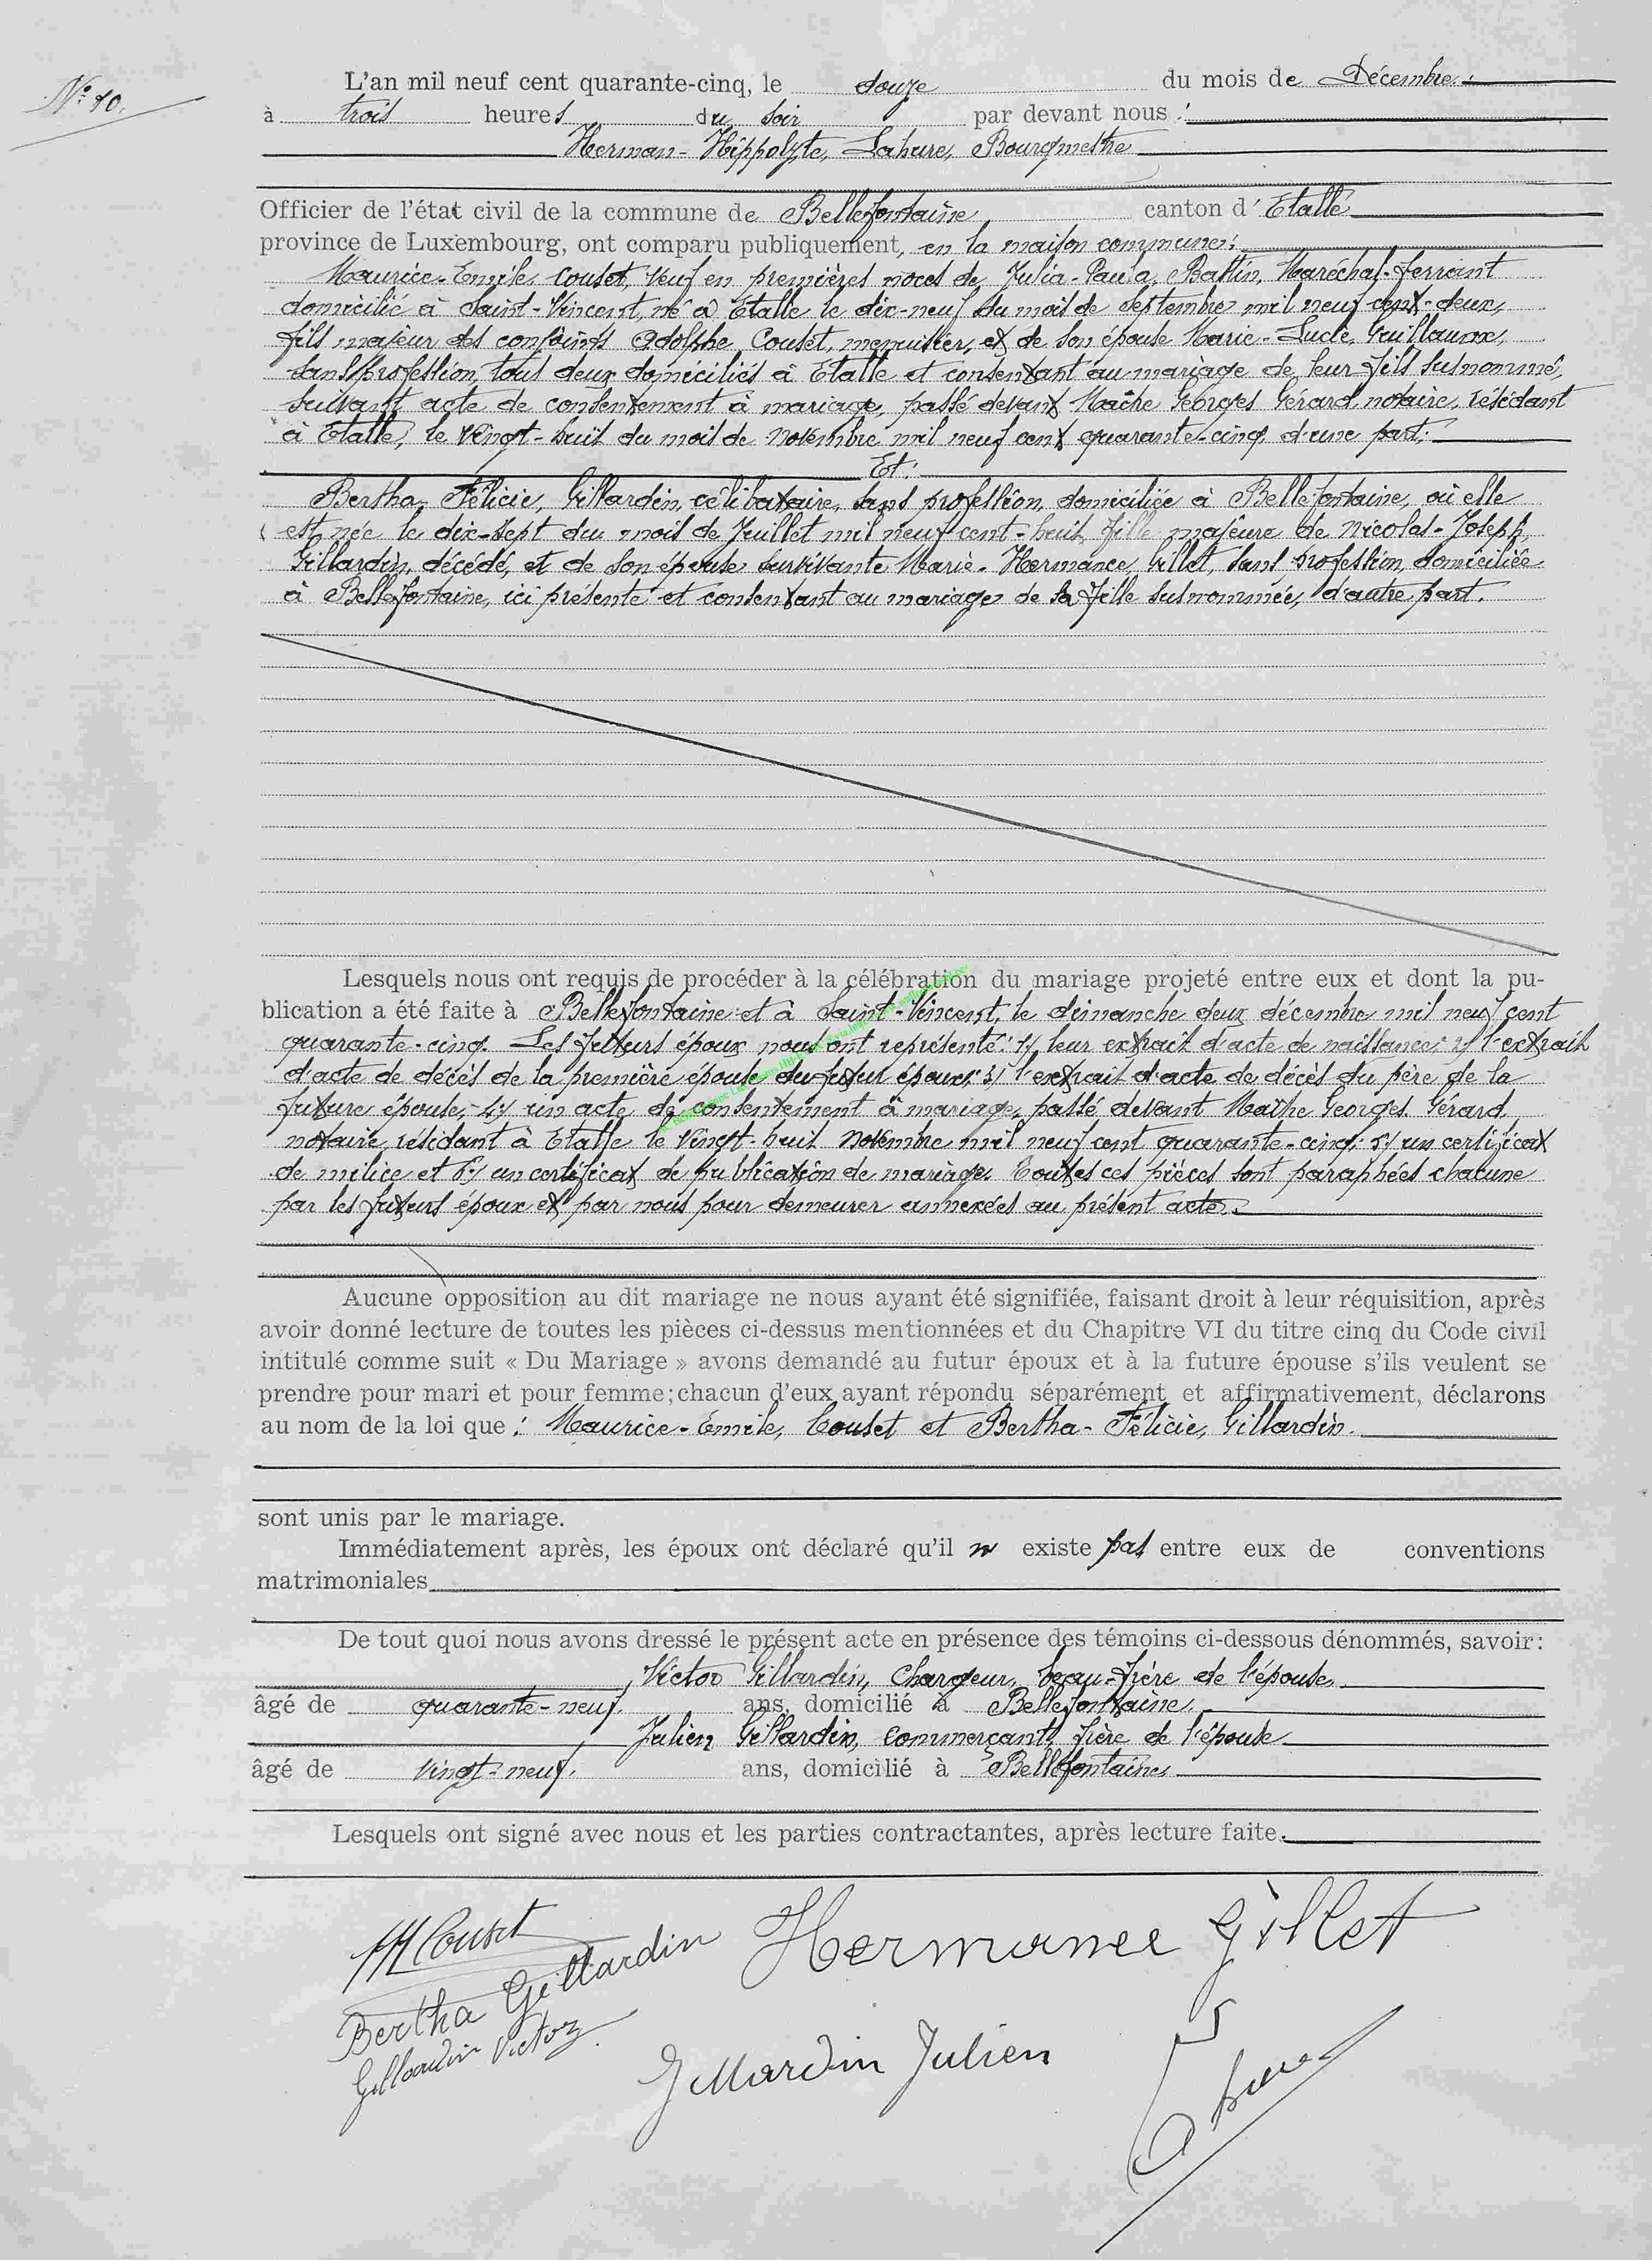 N° 10.
L'an mil neuf cent quarante-cinq, le douze du mois de Décembre.
à trois heures du soir par devant nous :
Herman-Hippolyte, Lahure, Bourgmestre
Officier de l'état civil de la commune de Bellefontaine canton d' Etalle
province de Luxembourg, ont comparu publiquement, en la maison commune:
Maurice-Emile, Couset, veuf en premières noces de Julia-Paula, Maréchal-ferrant
domicilié à Saint-Vincent, né à Etalle le dix-neuf du mois de septembre mil neuf cent-deux,
fils majeur des conjoints Adolphe Couset, menuisier, et de son épouse Marie-Lucie, Guillaume,
sans profession, tous deux domiciliés à Etalle et consentant au mariage de leur fils susnommé,
suivant acte de consentement à mariage, passé devant Maître Georges Gérard, notaire, résidant
à Etalle, le vingt-huit du mois de novembre mil neuf cent quarante-cinq, d'une part:
Et:
Bertha, Félicie, Gillardin, célibataire, sans profession, domiciliée à Bellefontaine, où elle
est née le dix-sept du mois de Juillet mil neuf cent-huit, fille majeure de Nicolas-Joseph,
Gillardin, décédé, et de son épouse survivante Marie-Hermance, Gillet, sans profession, domiciliée
à Bellefontaine, ici présente et consentant au mariage de sa fille susnommée, d'autre part.
Lesquels nous ont requis de procéder à la célébration du mariage projeté entre eux et dont la pu-
blication a été faite à Bellefontaine et à Saint-Vincent, le dimanche deux décembre mil neuf cent
quarante-cinq. Les futurs époux nous ont représenté: 1/ leur extrait d'acte de naissance; 2/ l'extrait
d'acte de décès de la première épouse du futur époux; 3/ l'extrait d'acte de décès du père de la
future épouse; 4/ un acte de consentement à mariage, passé devant Maître Georges Gérard
notaire, résidant à Etalle le vingt-huit novembre mil neuf cent quarante-cinq; 5/ un certificat
de milice et 6/ un certificat de publication de mariage. Toutes ces pièces sont paraphées chacune
par les futurs époux et par nous pour demeurer annexées au présent acte.
Aucune opposition au dit mariage ne nous ayant été signifiée, faisant droit à leur réquisition, après
avoir donné lecture de toutes les pièces ci-dessus mentionnées et du Chapitre VI du titre cinq du Code civil
intitulé comme suit « Du Mariage » avons demandé au futur époux et à la future épouse s'ils veulent se
prendre pour mari et pour femme; chacun d'eux ayant répondu séparément et affirmativement, déclarons
au nom de la loi que : Maurice-Emile, Couset et Bertha-Félicie, Gillardin.
sont unis par le mariage.
Immédiatement après, les époux ont déclaré qu'il n existe pas entre eux de conventions
matrimoniales
De tout quoi nous avons dressé le présent acte en présence des témoins ci-dessous dénommés, savoir:
Victor Gillardin, Chargeur, beau-frère de l'épouse,
âgé de quarante-neuf, ans, domicilié à Bellefontaine.
Julien Gillardin, commerçant, frère de l'épouse
âgé de vingt-neuf, ans, domicilié à Bellefontaine
Lesquels ont signé avec nous et les parties contractantes, après lecture faite.
M Couset
Bertha Gillardin
Hermance Gillet
Gillardin Victor
Gillardin Julien
Lahure